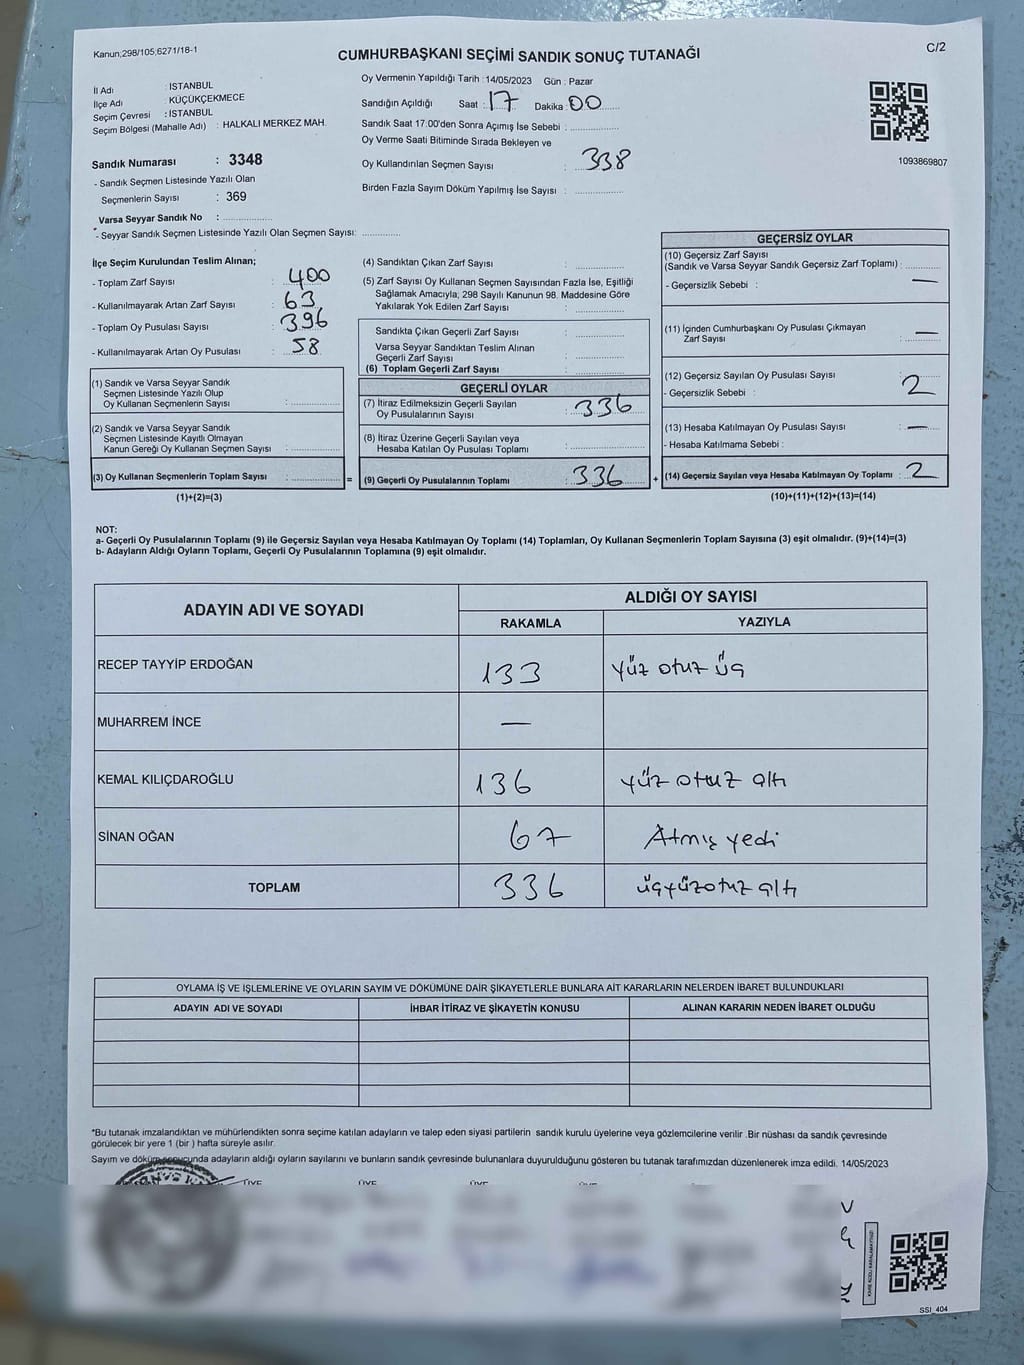 Kanun;298/105;6271/18-1
CUMHURBAŞKANI SEÇİMİ SANDIK SONUÇ TUTANAĞI
C/2
İl Adı : İSTANBUL
İlçe Adı : KÜÇÜKÇEKMECE
Seçim Çevresi : İSTANBUL
Seçim Bölgesi (Mahalle Adı) : HALKALI MERKEZ MAH.
Sandık Numarası : 3348
- Sandık Seçmen Listesinde Yazılı Olan
Seçmenlerin Sayısı : 369
Varsa Seyyar Sandık No :
- Seyyar Sandık Seçmen Listesinde Yazılı Olan Seçmen Sayısı:
Oy Vermenin Yapıldığı Tarih :14/05/2023 Gün : Pazar
Sandığın Açıldığı Saat : 17 Dakika : 00
Sandık Saat 17.00'den Sonra Açımış İse Sebebi :
Oy Verme Saati Bitiminde Sırada Bekleyen ve
Oy Kullandırılan Seçmen Sayısı : 338
Birden Fazla Sayım Döküm Yapılmış İse Sayısı :
1093869807
İlçe Seçim Kurulundan Teslim Alınan;
- Toplam Zarf Sayısı : 400
- Kullanılmayarak Artan Zarf Sayısı : 63
- Toplam Oy Pusulası Sayısı : 396
- Kullanılmayarak Artan Oy Pusulası : 58
(1) Sandık ve Varsa Seyyar Sandık
Seçmen Listesinde Yazılı Olup
Oy Kullanan Seçmenlerin Sayısı :
(2) Sandık ve Varsa Seyyar Sandık
Seçmen Listesinde Kayıtlı Olmayan
Kanun Gereği Oy Kullanan Seçmen Sayısı :
(3) Oy Kullanan Seçmenlerin Toplam Sayısı : =
(1)+(2)=(3)
(4) Sandıktan Çıkan Zarf Sayısı :
(5) Zarf Sayısı Oy Kullanan Seçmen Sayısından Fazla İse, Eşitliği
Sağlamak Amacıyla; 298 Sayılı Kanunun 98. Maddesine Göre
Yakılarak Yok Edilen Zarf Sayısı :
Sandıkta Çıkan Geçerli Zarf Sayısı :
Varsa Seyyar Sandıktan Teslim Alınan
Geçerli Zarf Sayısı :
(6) Toplam Geçerli Zarf Sayısı :
GEÇERLİ OYLAR
(7) İtiraz Edilmeksizin Geçerli Sayılan
Oy Pusulalarının Sayısı : 336
(8) İtiraz Üzerine Geçerli Sayılan veya
Hesaba Katılan Oy Pusulası Toplamı :
(9) Geçerli Oy Pusulalarının Toplamı : 336 +
GEÇERSİZ OYLAR
(10) Geçersiz Zarf Sayısı
(Sandık ve Varsa Seyyar Sandık Geçersiz Zarf Toplamı) :
- Geçersizlik Sebebi : —
(11) İçinden Cumhurbaşkanı Oy Pusulası Çıkmayan
Zarf Sayısı : —
(12) Geçersiz Sayılan Oy Pusulası Sayısı :
- Geçersizlik Sebebi : 2
(13) Hesaba Katılmayan Oy Pusulası Sayısı : —
- Hesaba Katılmama Sebebi :
(14) Geçersiz Sayılan veya Hesaba Katılmayan Oy Toplamı : 2
(10)+(11)+(12)+(13)=(14)
NOT:
a- Geçerli Oy Pusulalarının Toplamı (9) ile Geçersiz Sayılan veya Hesaba Katılmayan Oy Toplamı (14) Toplamları, Oy Kullanan Seçmenlerin Toplam Sayısına (3) eşit olmalıdır. (9)+(14)=(3)
b- Adayların Aldığı Oyların Toplamı, Geçerli Oy Pusulalarının Toplamına (9) eşit olmalıdır.
ADAYIN ADI VE SOYADI
ALDIĞI OY SAYISI
RAKAMLA YAZIYLA
RECEP TAYYİP ERDOĞAN 133 yüz otuz üç
MUHARREM İNCE —
KEMAL KILIÇDAROĞLU 136 yüz otuz altı
SİNAN OĞAN 67 Atmış yedi
TOPLAM 336 üçyüzotuz altı
OYLAMA İŞ VE İŞLEMLERİNE VE OYLARIN SAYIM VE DÖKÜMÜNE DAİR ŞİKAYETLERLE BUNLARA AİT KARARLARIN NELERDEN İBARET BULUNDUKLARI
ADAYIN ADI VE SOYADI İHBAR İTİRAZ VE ŞİKAYETİN KONUSU ALINAN KARARIN NEDEN İBARET OLDUĞU
*Bu tutanak imzalandıktan ve mühürlendikten sonra seçime katılan adayların ve talep eden siyasi partilerin sandık kurulu üyelerine veya gözlemcilerine verilir .Bir nüshası da sandık çevresinde
görülecek bir yere 1 (bir ) hafta süreyle asılır.
Sayım ve döküm sonucunda adayların aldığı oyların sayılarını ve bunların sandık çevresinde bulunanlara duyurulduğunu gösteren bu tutanak tarafımızdan düzenlenerek imza edildi. 14/05/2023
ÜYE ÜYE ÜYE
SSİ_404